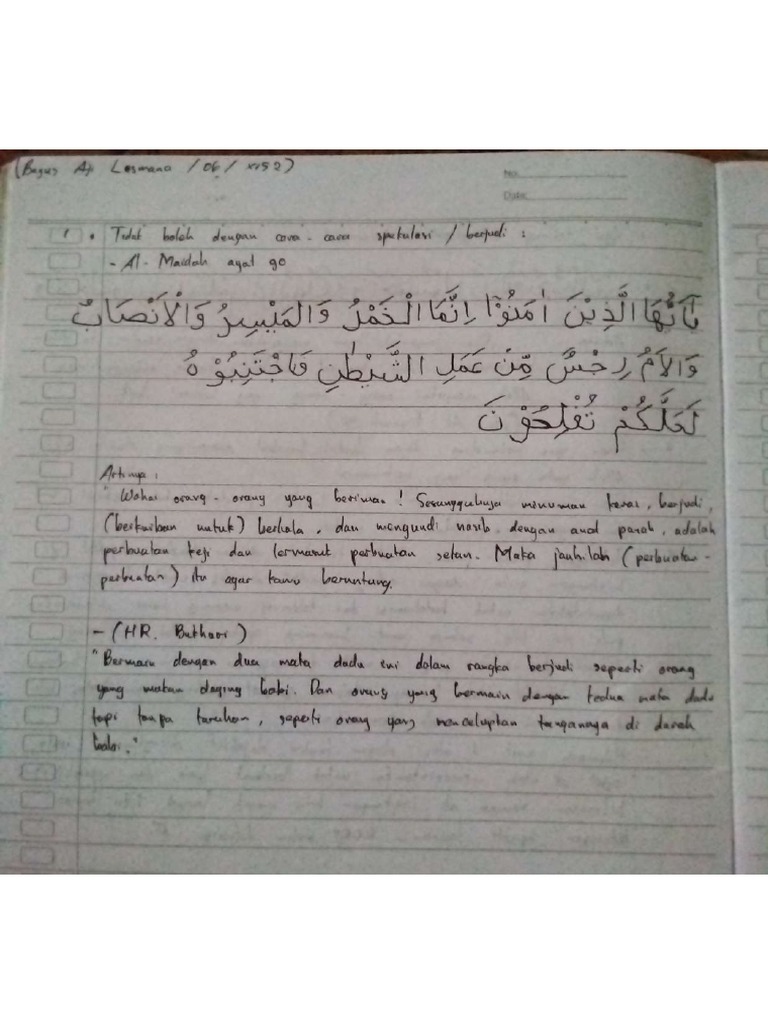 (Bagus Aji Lesmana / 06 / XIS2)
No.
Date.
1 . Tidak boleh dengan cara-cara spekulasi / berjudi :
- Al-Maidah ayat 90
يٰٓاَيُّهَا الَّذِيْنَ اٰمَنُوْٓا اِنَّمَا الْخَمْرُ وَالْمَيْسِرُ وَالْاَنْصَابُ
وَالْاَمُ رِجْسٌ مِّنْ عَمَلِ الشَّيْطٰنِ فَاجْتَنِبُوْهُ
لَعَلَّكُمْ تُفْلِحُوْنَ
Artinya :
"Wahai orang-orang yang beriman! Sesungguhnya minuman keras, berjudi,
(berkurban untuk) berhala, dan mengundi nasib dengan anak panah, adalah
perbuatan keji dan termasuk perbuatan setan. Maka jauhilah (perbuatan-
perbuatan) itu agar kamu beruntung.
- (HR. Bukhari)
"Bermain dengan dua mata dadu ini dalam rangka berjudi seperti orang
yang makan daging babi. Dan orang yang bermain dengan kedua mata dadu
tapi tanpa taruhan, seperti orang yang mencelupkan tangannya di darah
babi."